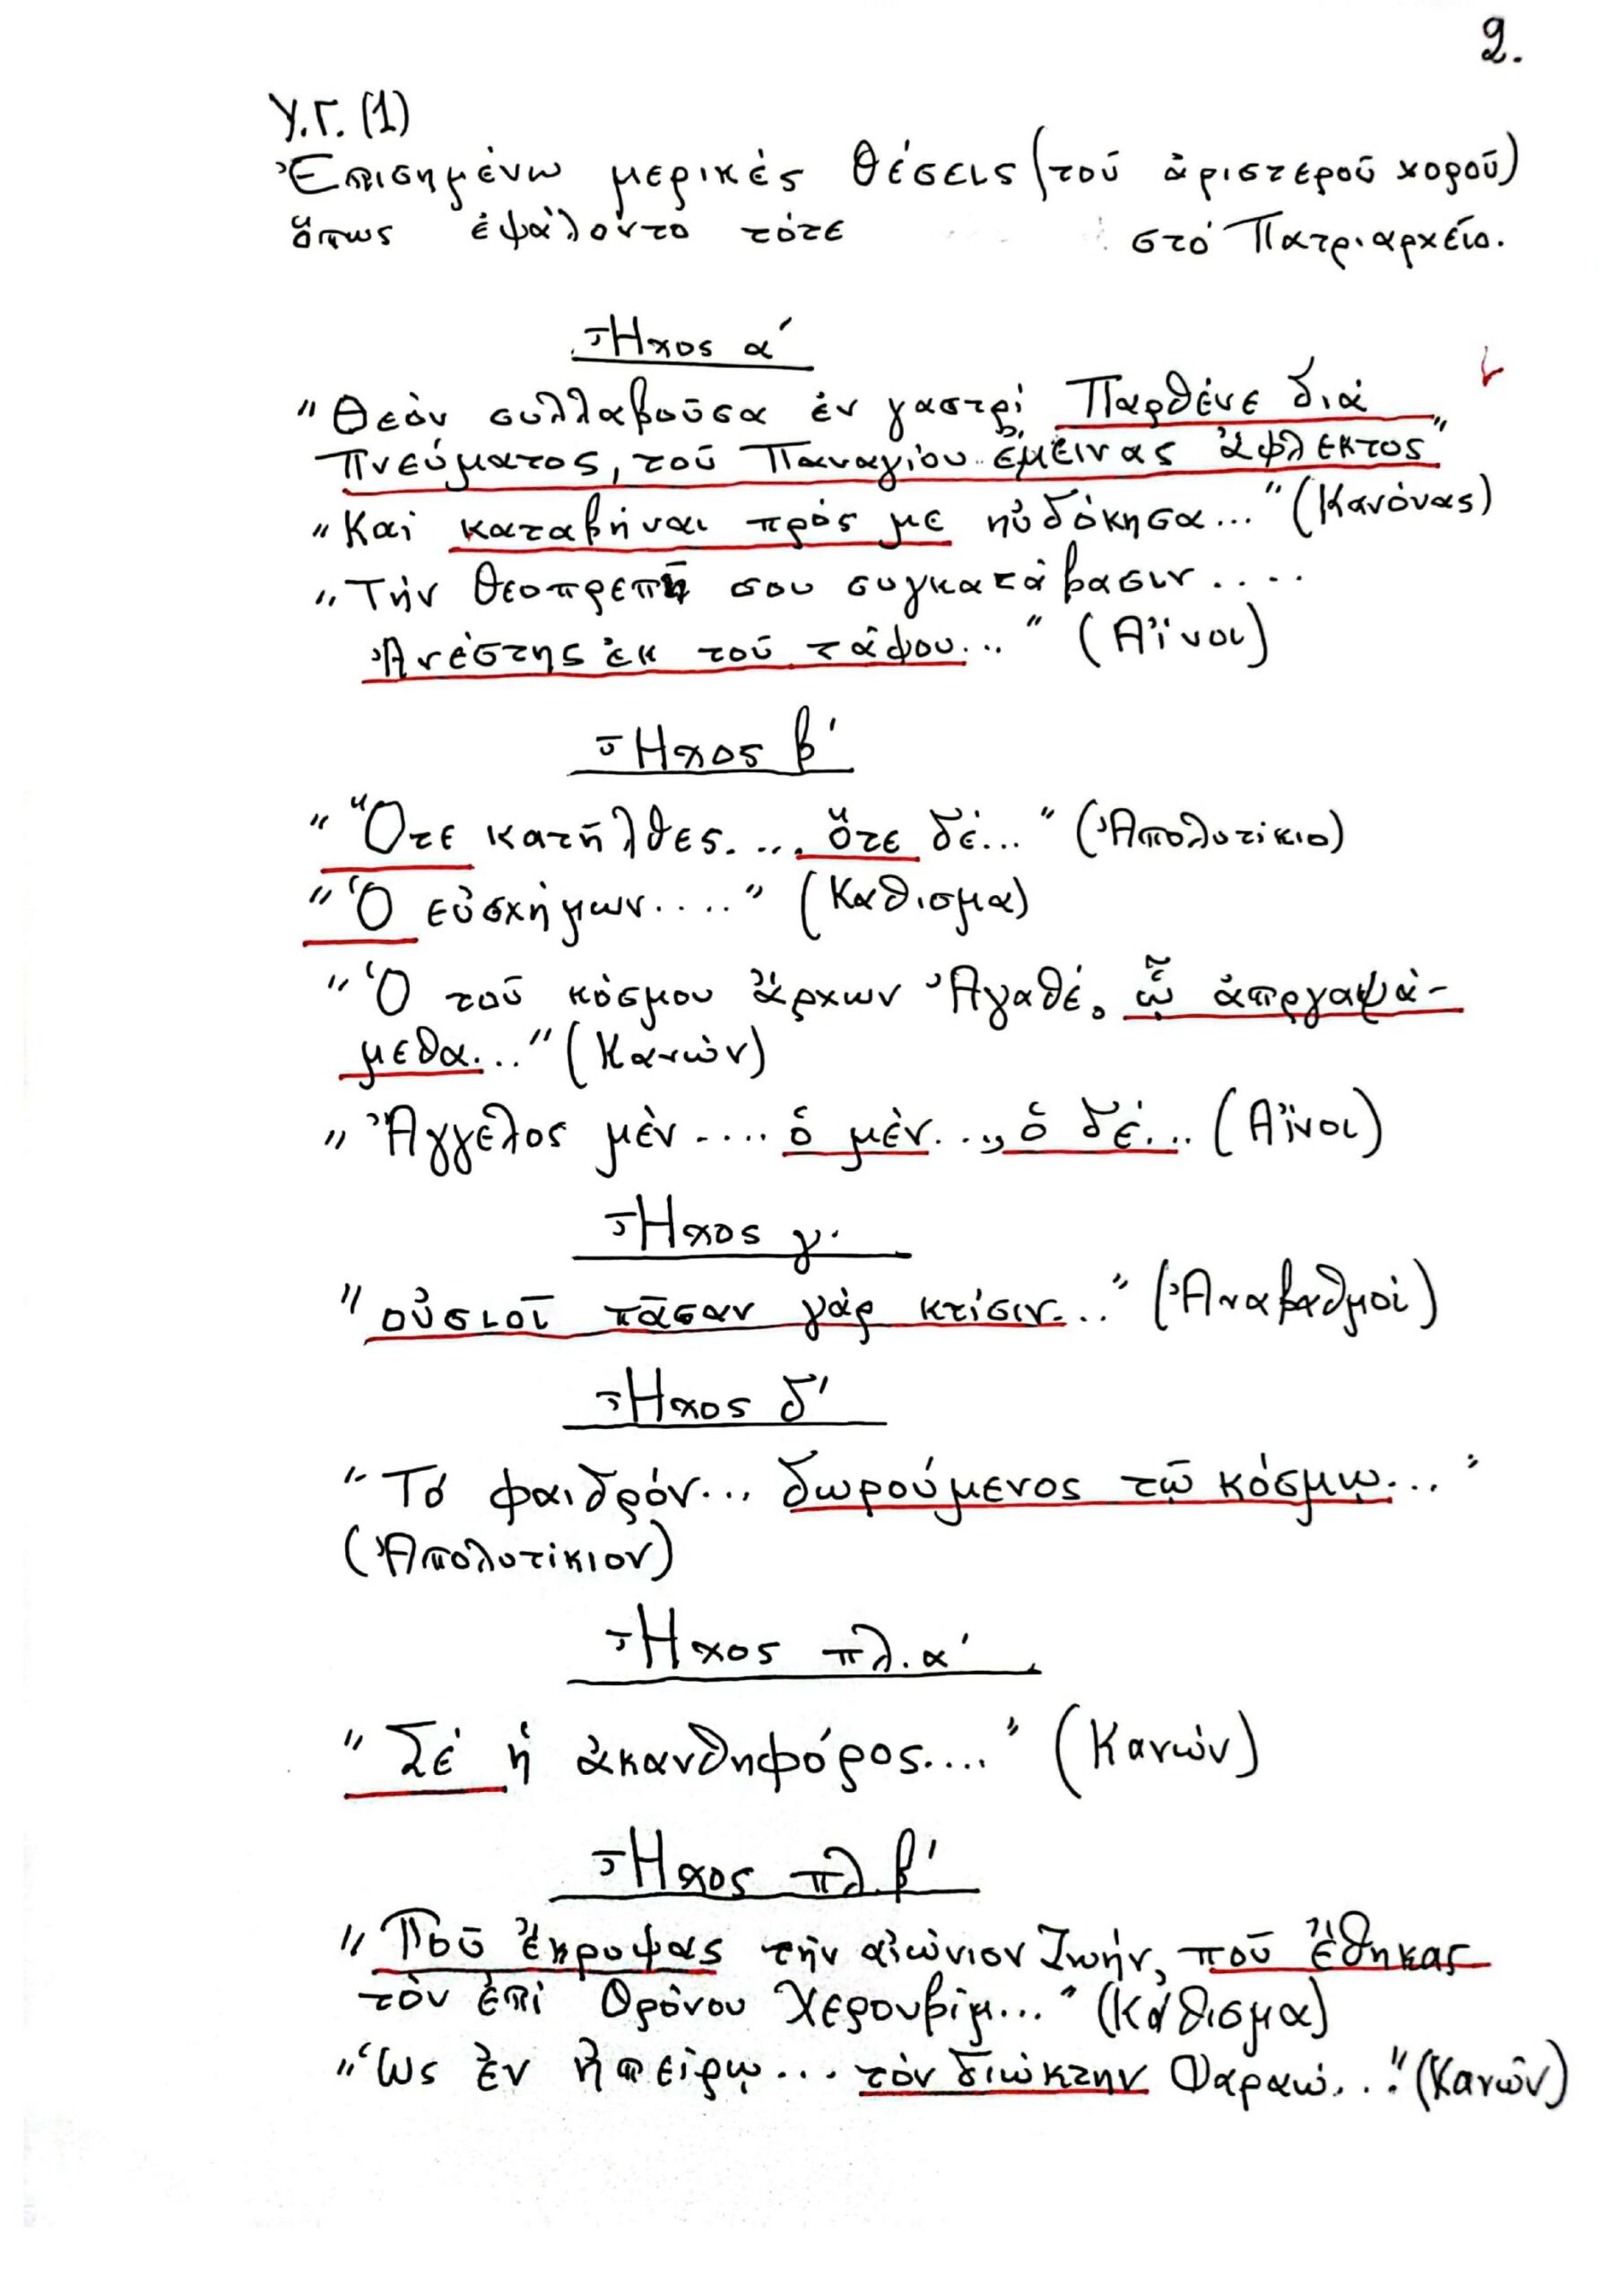 2.
Υ.Γ. (1)
Ἐπισημένω μερικές θέσεις (τοῦ ἀριστεροῦ χοροῦ)
ὅπως ἐψάλοντο τότε στό Πατριαρχεῖο.
Ἦχος α΄
"Θεόν συλλαβοῦσα ἐν γαστρί Παρθένε διά
Πνεύματος, τοῦ Παναγίου ἔμεινας ἄφλεκτος"
"Καί καταβῆναι πρός με ηὐδόκησα..." (Κανόνας)
"Τήν θεοπρεπῆ σου συγκατάβασιν....
Ἀνέστης ἐκ τοῦ τάφου..." (Αἶνοι)
Ἦχος β΄
"Ὅτε κατῆλθες.... ὅτε δέ..." (Ἀπολυτίκιο)
"Ὁ εὐσχήμων...." (Κάθισμα)
"Ὁ τοῦ κόσμου ἄρχων Ἀγαθέ. ᾧ ἀπργαψά-
μεθα..." (Κανών)
"Ἄγγελος μέν.... ὁ μέν..., ὁ δέ... (Αἶνοι)
Ἦχος γ.
"οὐσιοῖ πᾶσαν γάρ κτίσιν..." (Ἀναβαθμοί)
Ἦχος δ΄
"Τό φαιδρόν... δωρούμενος τῷ κόσμῳ..."
(Ἀπολυτίκιον)
Ἦχος πλ. α΄
"Σέ ἡ ἀκανθηφόρος...." (Κανών)
Ἦχος πλ. β΄
"Ποῦ ἔκρυψας τήν αἰώνιον Ζωήν, ποῦ ἔθηκας
τόν ἐπί Θρόνου Χερουβίμ..." (Κάθισμα)
"Ὡς ἐν ἠπείρῳ... τόν διώκτην Φαραώ..." (Κανών)